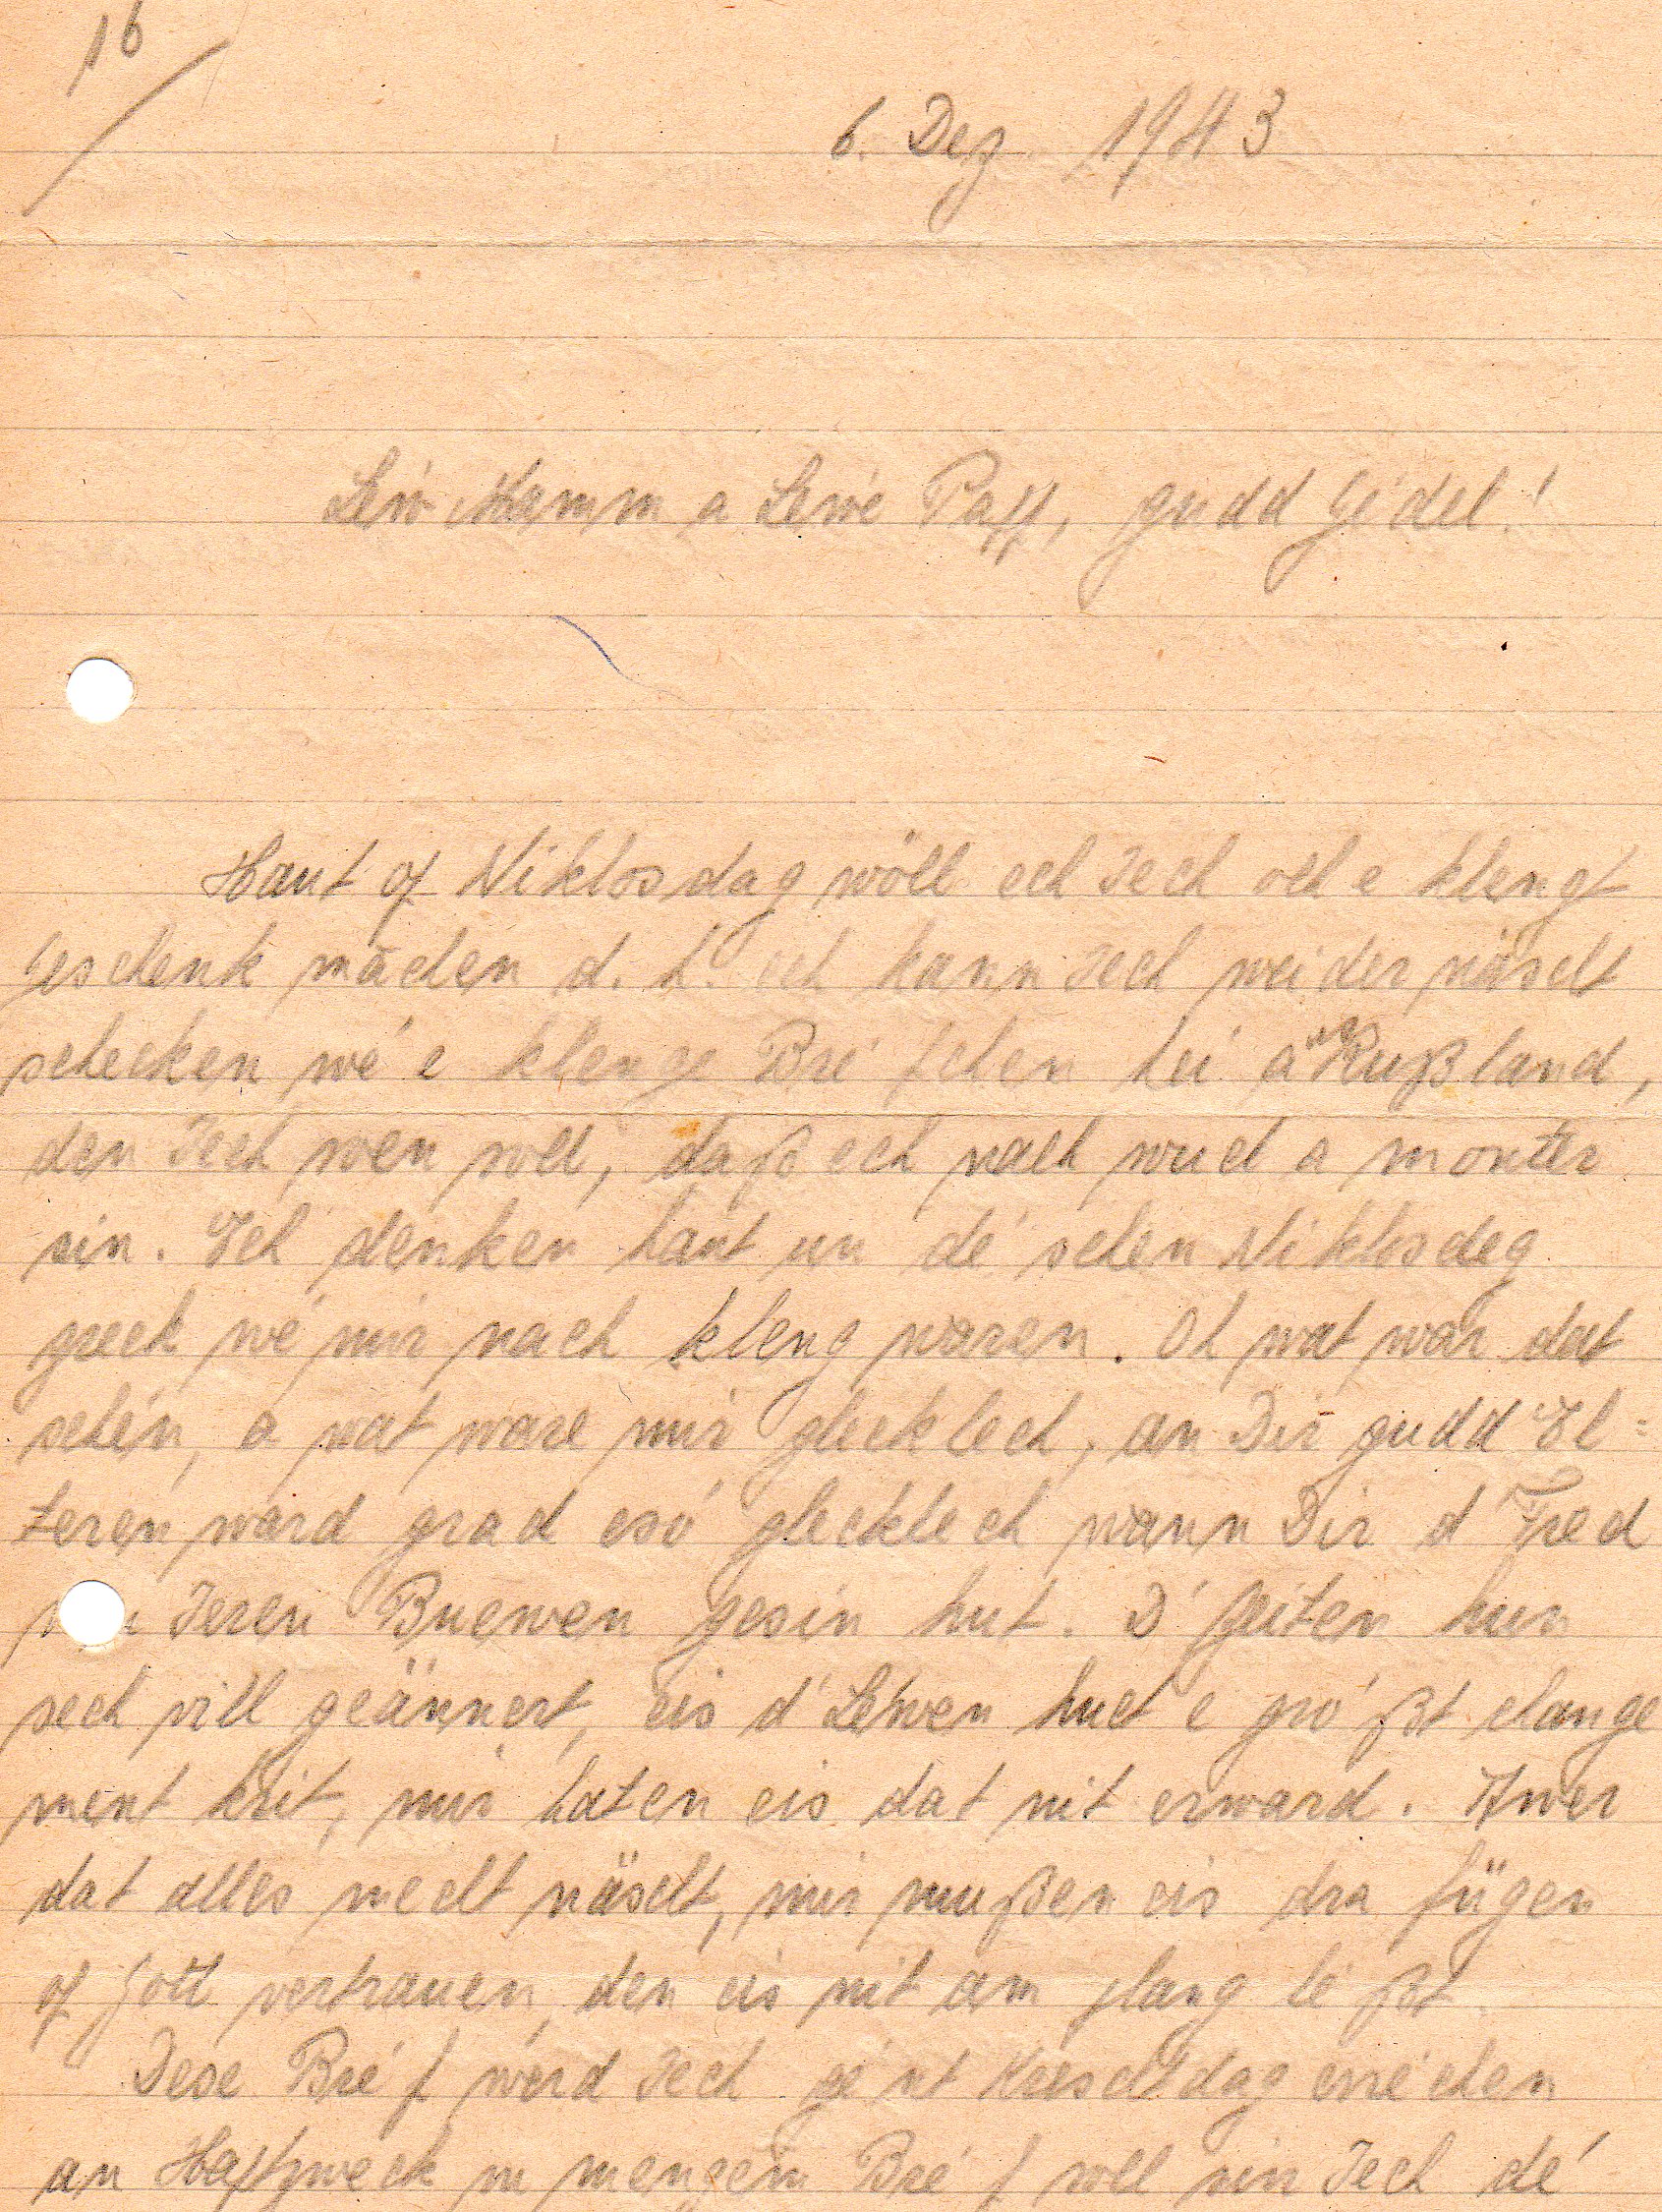 16
6. Dez. 1943
Léw Mamm a Léwe Papp, gudd Gédel!
Haut of Niklosdag wöll ech Iech och e klengt
Geschenk mächen d. h. ech kann Iech weider näscht
schecken wé e klenge Bréfchen hei a Rußland,
den Iech soen soll, daß ech nach wuel a monter
sin. Ech denken haut un dé schén Niklosdeg
zreck wé mir nach kleng waren. Oh wat war dat
schén, a wat ware mir glecklech, an Dir gudd El=
teren ward grad esó glecklech wann Dir d'Fred
Ieren Buewen gesin hut. D'Zeiten hun
sech vill geännert, eis d'Léwen huet e gróßt change
ment krit, mir haten eis dat nit erward. Awer
dat alles mecht näscht, mir mußen eis dra fügen
of Gott vertrauen, den eis nit am Stang léßt.
Dese Bréf werd Iech gént Krëschtdag erréchen
an Haftzweck vu mengem Bréf soll sin Iech dé